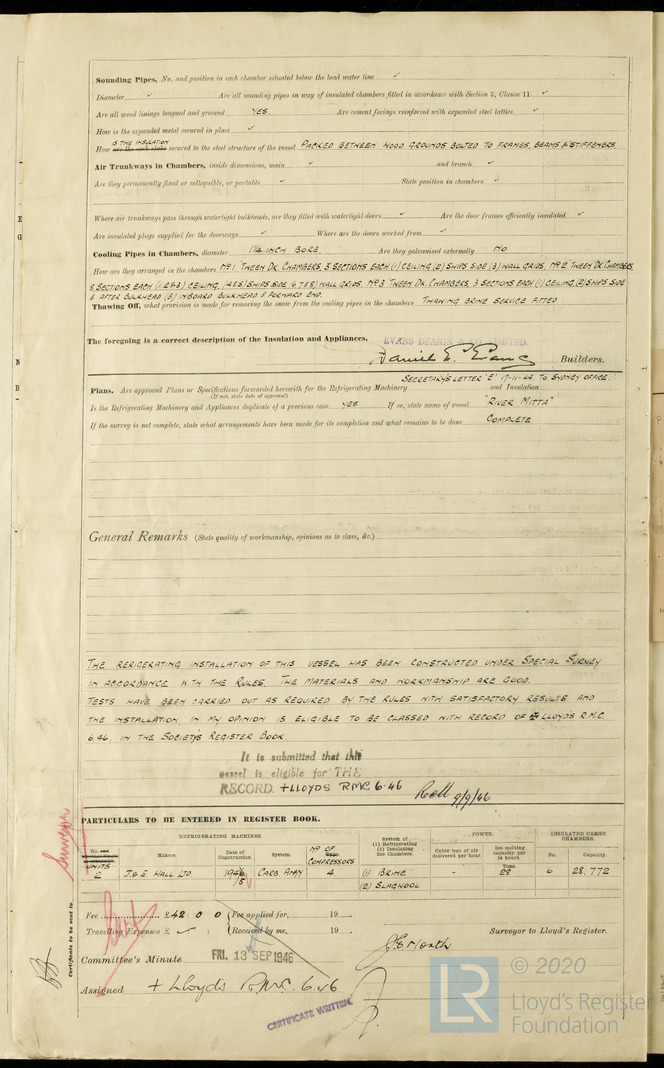 Sounding Pipes, No. and position in each chamber situated below the load water line ✓
Diameter ✓ Are all sounding pipes in way of insulated chambers fitted in accordance with Section 3, Clause 11 ✓
Are all wood linings tongued and grooved YES Are cement facings reinforced with expanded steel lattice ✓
How is the expanded metal secured in place ✓
IS THE INSULATION
How are the cork slabs secured to the steel structure of the vessel PACKED BETWEEN WOOD GROUNDS BOLTED TO FRAMES, BEAMS & STIFFENERS.
Air Trunkways in Chambers, inside dimensions, main ✓ and branch ✓
Are they permanently fixed or collapsible, or portable ✓ State position in chambers ✓
Where air trunkways pass through watertight bulkheads, are they fitted with watertight doors ✓ Are the door frames efficiently insulated ✓
Are insulated plugs supplied for the doorways ✓ Where are the doors worked from ✓
Cooling Pipes in Chambers, diameter 1¼ INCH BORE. Are they galvanised externally NO
How are they arranged in the chambers Nº1 'TWEEN DK. CHAMBERS, 3 SECTIONS EACH (1) CEILING, (2) SHIPS SIDE (3) WALL GRIDS. Nº2 'TWEEN DK CHAMBERS,
8 SECTIONS EACH (1.2&3) CEILING, (4&5) SHIPS SIDE (6 7&8) WALL GRIDS. Nº3 'TWEEN DK. CHAMBERS, 3 SECTIONS EACH (1) CEILING, (2) SHIPS SIDE
& AFTER BULKHEAD (3) INBOARD BULKHEAD & FORWARD END.
Thawing Off, what provision is made for removing the snow from the cooling pipes in the chambers THAWING BRINE SERVICE FITTED.
The foregoing is a correct description of the Insulation and Appliances.
EVANS DEAKIN & CO LIMITED.
Daniel E. Evans Builders.
SECRETARY'S LETTER 'E' 17-11-44 TO SYDNEY OFFICE.
Plans. Are approved Plans or Specifications forwarded herewith for the Refrigerating Machinery and Insulation
(If not, state date of approval)
Is the Refrigerating Machinery and Appliances duplicate of a previous case YES If so, state name of vessel "RIVER MITTA"
If the survey is not complete, state what arrangements have been made for its completion and what remains to be done COMPLETE
General Remarks (State quality of workmanship, opinions as to class, &c.)
THE RERIGERATING INSTALLATION OF THIS VESSEL HAS BEEN CONSTRUCTED UNDER SPECIAL SURVEY
IN ACCORDANCE WITH THE RULES. THE MATERIALS AND WORKMANSHIP ARE GOOD.
TESTS HAVE BEEN CARRIED OUT AS REQUIRED BY THE RULES WITH SATISFACTORY RESULTS AND
THE INSTALLATION, IN MY OPINION IS ELIGIBLE TO BE CLASSED WITH RECORD OF LLOYD'S R.M.C.
6,46, IN THE SOCIETY'S REGISTER BOOK.
It is submitted that this
vessel is eligible for THE
RECORD. + LLOYDS RMC 6.46
9/9/46
PARTICULARS TO BE ENTERED IN REGISTER BOOK.
REFRIGERATING MACHINES. POWER. INSULATED CARGO CHAMBERS.
No. UNITS Makers. Date of Construction. System. Nº OF COMPRESSORS System of (1) Refrigerating (2) Insulating the Chambers. Cubic feet of air delivered per hour. Ice melting capacity per 24 hours. No. Capacity.
Tons.
2 J.& E. HALL LTD. 1945 CARB. ANHY 4. (1) BRINE - 28 6 28,772
(2) SLAGWOOL
Surveyor
Certificate to be sent to
Fee £42 : 0 : 0 Fee applied for, 19
Travelling Expenses £ ✓ : Received by me, 19
Surveyor to Lloyd's Register.
Committee's Minute FRI. 13 SEP 1946
Assigned + Lloyd's R.M.C. 6.46
CERTIFICATE WRITTEN.
LR
© 2020
Lloyd's Register
Foundation